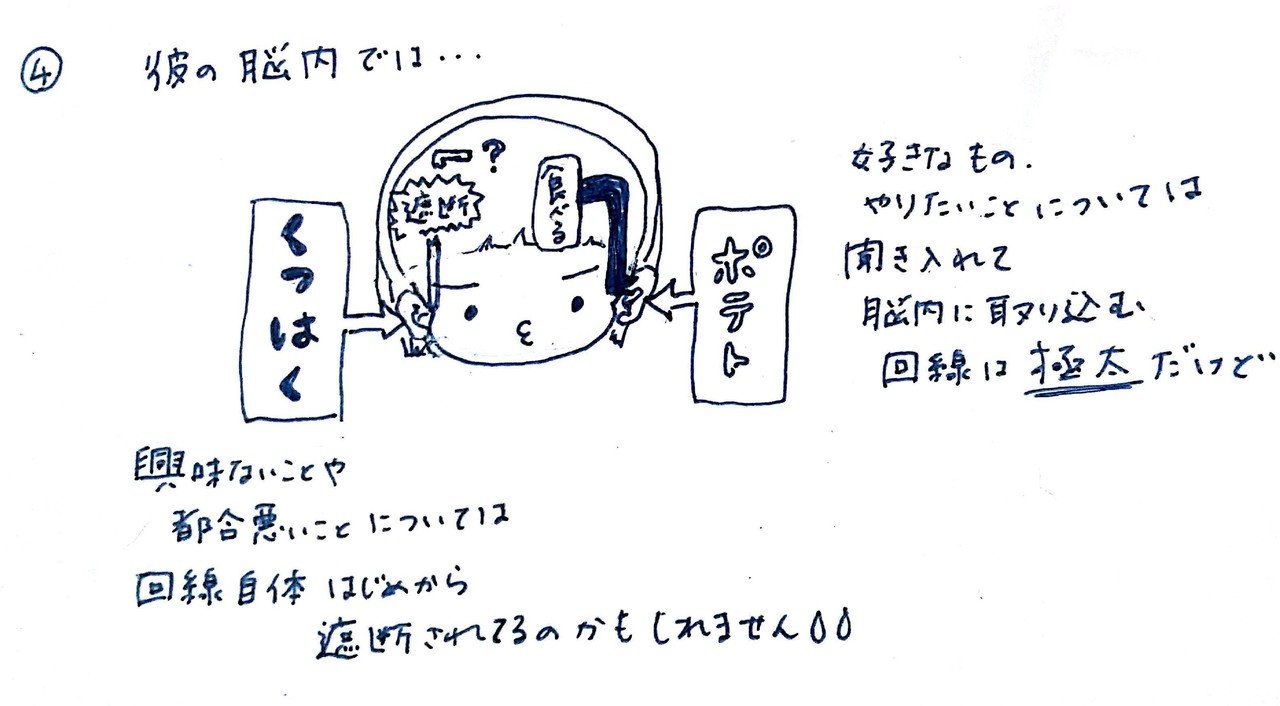 ④ 彼の脳内では…
ー?
遮断
食べる
くつはく
ポテト
好きなもの.
やりたいことについては
聞き入れて
脳内に取り込む
回線は極太だけど
興味ないことや
都合悪いことについては
回線自体はじめから
遮断されてるのかもしれません